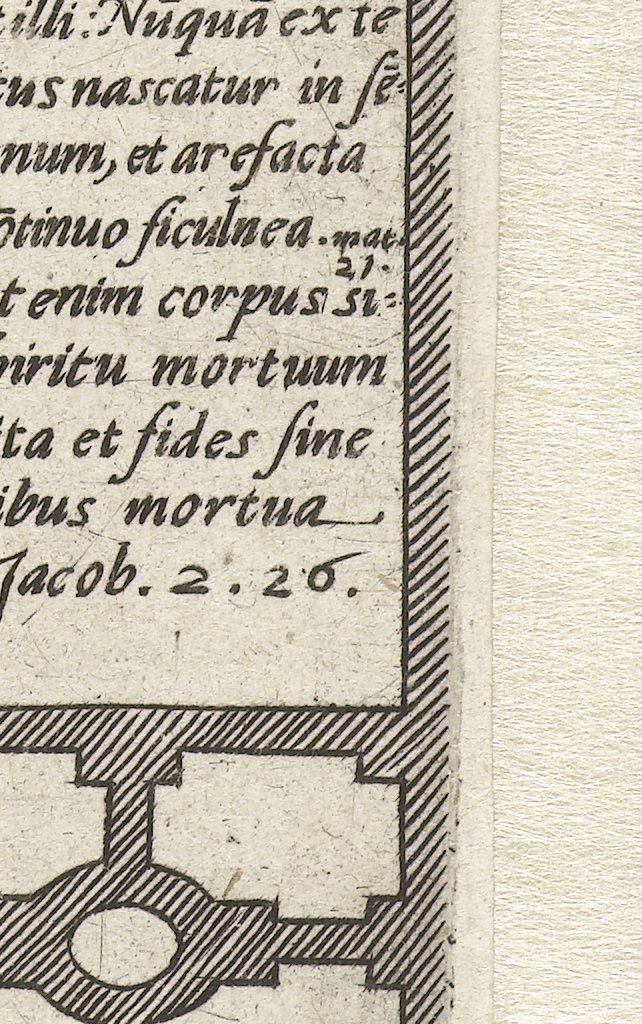 illi: Nuqua ex te
tus nascatur in sē=
num, et arefacta
ōtinuo ficulnea. mat.
21.
t enim corpus si=
piritu mortuum
ita et fides sine
ibus mortua
Jacob. 2. 26.